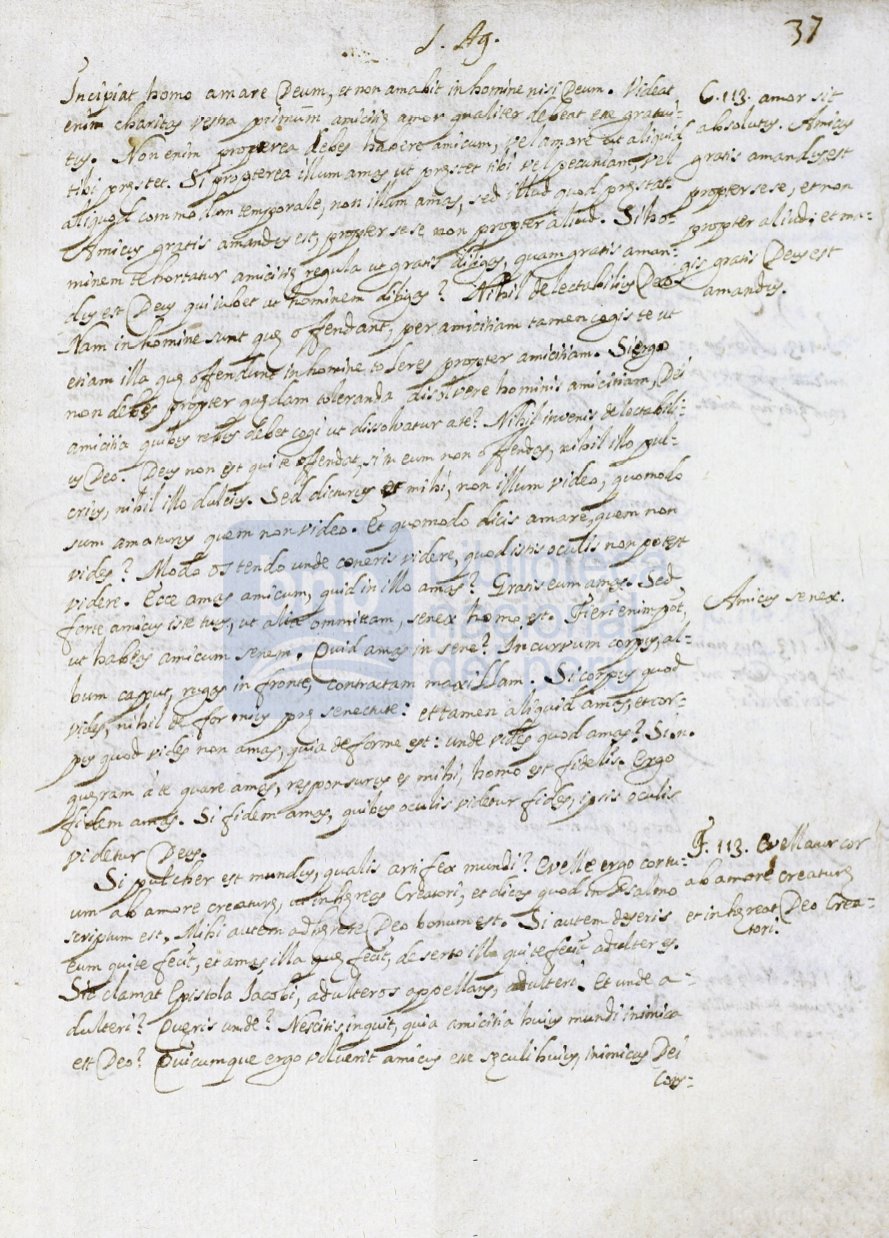 37
S. Ag.
Incipiat homo amare Deum, et non amabit in homine nisi Deum. Videat
enim charitas vestra primum amicitię amor qualiter debeat esse gratui-
tus. Non enim propterea debes habere amicum, vel amare ut aliquid
tibi pręstet. Si propterea illum amas ut pręstet tibi vel pecuniam, vel
aliquod commodum temporale, non illum amas, sed illud quod pręstat.
Amicus gratis amandus est, propter sese non propter aliud. Si ho-
minem te hortatur amicitię regula ut gratis diligas, quam gratis aman-
dus est Deus qui iubet ut hominem diligas? Nihil delectabilius Deo
Nam in homine sunt quę offendant, per amicitiam tamen cogis te ut
etiam illa quę offendunt in homine toleres propter amicitiam. Si ergo
non debes propter quędam toleranda disolvere hominis amicitiam, Dei
amicitia quibus rebus debet cogi ut dissolvatur a te? Nihil invenis delectabili-
us Deo. Deus non est qui te offendat, si tu eum non offendas, nihil illo pul-
crius, nihil illo dulcius. Sed dicturus es mihi, non illum video, quomodo
sum amaturus quem non video. Et quomodo dicis amare, quem non
vides? Modo ostendo unde coneris videre, quod istis oculis non potest
videre. Ecce amas amicum, quid in illo amas? Gratis eum amas. Sed
forte amicus iste tuus, ut alia ommittam, senex homo est. Fieri enim pot,
ut habeas amicum senem. Quid amas in sene? Incurvum corpus, al-
bum caput, rugas in fronte, contractam maxillam. Si corpus quod
vides, nihil deformius prę senectute: et tamen aliquid amas, et cor-
pus quod vides non amas, quia deforme est: unde vides quod amas? Si n.
quęram á te quare ames, responsurus es mihi, homo est fidelis. Ergo
fidem amas. Si fidem amas, quibus oculis videtur fides, ipsis oculis
videtur Deus.
Si pulcher est mundus, qualis artifex mundi? Evelle ergo cor tu-
um ab amore creaturę, ut inhęres Creatori, et dicas quod in Psalmo
scriptum est, Mihi autem adhęrere Deo bonum est. Si autem deseris
eum qui te fecit, et amas illa quę fecit, deserto illo qui te fecit adulter es.
Sic clamat Epistola Jacobi, adulteros appellans, adulteri. Et unde a-
dulteri? Quęris unde? Nescitis, inquit, quia amicitia huius mundi inimica
est Deo? Quicumque ergo voluerit amicus esse sęculi huius, inimicus Dei
cons-
C. 113. amor sit
absolutus. Amicus
gratis amandus est
propter sese, et non
propter aliud: et ma-
gis gratis Deus est
amandus.
Amicus senex.
F. 113. Evellatur cor
ab amore creaturę
et inhęreat Deo Crea-
tori.
bnp biblioteca
nacional
del perú